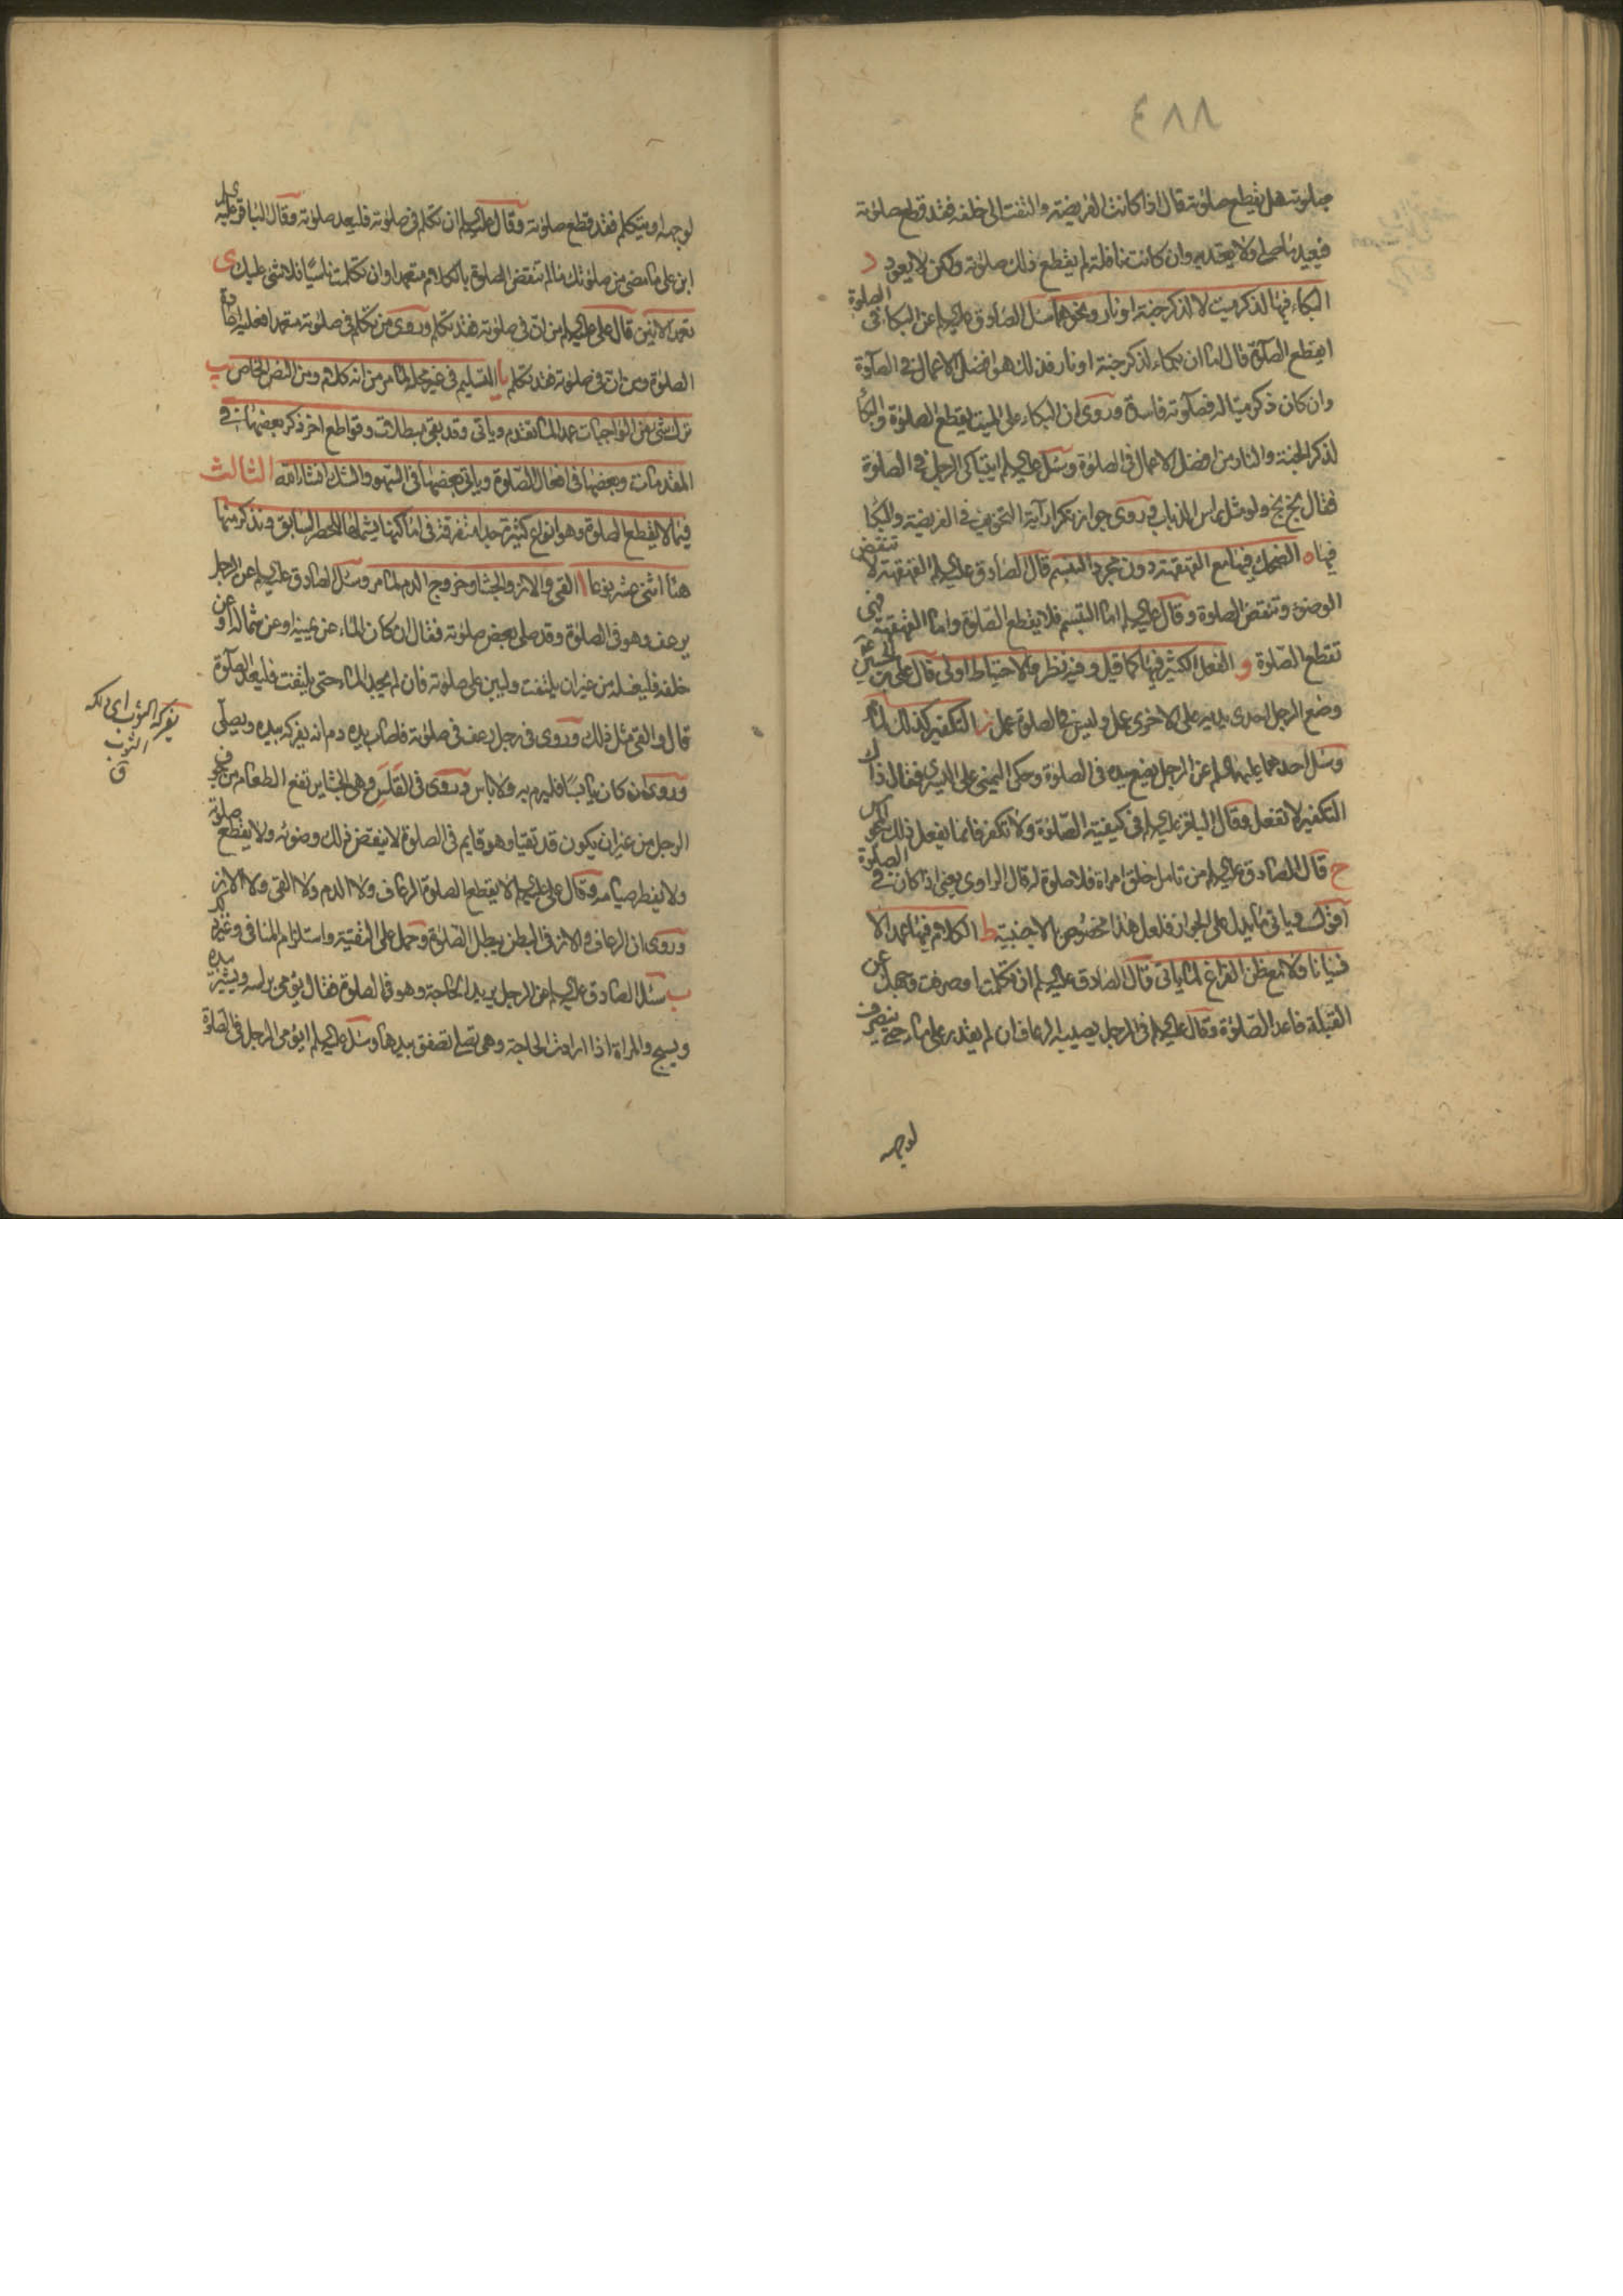 ٤٨٨
صلوته هل يقطع صلوته قال اذا كانت الفريضة والتفت الى خلفه فقد قطع صلوته
فيعيد ما صلى ولا يعتد به وان كانت نافلة لم يقطع ذلك صلوته ولكن لا يعود د
البكاء فيها لذكر ميت لا لذكر جنة او نار ونحوهما سئل الصادق عليه السلم عن البكاء فى الصلوة
ايقطع الصلوة قال اما ان بكاء لذكر جنة او نار فذلك هو افضل الاعمال فى الصلوة
وان كان ذكر ميتا له فصلوته فاسدة وروى ان البكاء على الميت يقطع الصلوة والبكاء
لذكر الجنة والنار من افضل الاعمال فى الصلوة وسئل عليه السلم ايتباكى الرجل فى الصلوة
فقال بخ بخ ولو مثل راس الذباب وروى جواز تكرار آية التخويف فى الفريضة والبكا
فيها ه الضحك فيها مع القهقهة دون مجرد التبسم قال الصادق عليه السلم القهقهة لا تنقض
الوضوء وتنقض الصلوة وقال عليه السلم اما التبسم فلا يقطع الصلوة واما القهقهة فهى
تقطع الصلوة و الفعل الكثير فيها كما قيل وفيه نظر والاحتياط اولى قال على بن الحسين ع
وضع الرجل احدى يديه على الاخرى عمل وليس فى الصلوة عمل ز التكفير كذلك لما مر
وسئل احدهما عليهما السلم عن الرجل يضع يده فى الصلوة وحكى اليمنى على اليسرى فقال ذلك
التكفير لا تفعل وقال الباقر عليه السلم فى كيفية الصلوة ولا تكفر فانما يفعل ذلك المجوس
ح قال الصادق عليه السلم من تامل خلق امراة فلا صلوة له قال الراوى يعنى اذا كان فى الصلوة
اقول وياتى ما يدل على الجواز فلعل هذا مخصوص بالاجنبية ط الكلام فيها عمدا لا
نسيانا ولا مع ظن الفراغ لما ياتى قال الصادق عليه السلم ان تكلمت او صرفت وجهك عن
القبلة فاعد الصلوة وقال عليه السلم فى الرجل يصيبه الرعاف ان لم يقدر على ماء حتى ينصرف
لوجهه
لوجهه او يتكلم فقد قطع صلوته وقال عليه السلم ان تكلم فى صلوته فليعد صلوته وقال الباقر عليه
ابن على ما مضى من صلوتك ما لم تنقض الصلوة بالكلام متعمدا وان تكلمت ناسيا فلا شئ عليك ى
تعمد الانين قال على عليه السلم من ان فى صلوته فقد تكلم وروى من تكلم فى صلوته متعمدا فعليه اعادة
الصلوة ومن ان فى صلوته فقد تكلم يا التسليم فى غير محله لما مر من انه كلام ومن النص الخاص يب
ترك شئ من الواجبات عمدا لما تقدم وياتى وقد بقى مبطلات وقواطع اخر ذكر بعضها فى
المقدمات وبعضها فى افعال الصلوة وياتى بعضها فى السهو والشك انشاء الله الثالث
فيما لا يقطع الصلوة وهو انواع كثيرة جدا متفرقة فى اماكنها يشملها الحصر السابق ونذكر منها
هنا اثنى عشر نوعا ا القى والاز والجشا وخروج الدم لما مر وسئل الصادق عليه السلم عن الرجل
يرعف وهو فى الصلوة وقد صلى بعض صلوته فقال ان كان الماء عن يمينه او عن شماله او عن
خلفه فليغسله من غير ان يلتفت وليبن على صلوته فان لم يجد الماء حتى يلتفت فليعد الصلوة
قال والقى مثل ذلك وروى فى رجل رعف فى صلوته فاصاب يده دم انه يفركه بيده ويصلى
وروى ان كان يابسا فليرم به ولا باس وروى فى القلس وهى الجشاء يرتفع الطعام من جوف
الرجل من غير ان يكون قد تقيا وهو قايم فى الصلوة لا ينقض ذلك وضوئه ولا يقطع صلوته
ولا يفطر صيامه وقال على عليه السلم لا يقطع الصلوة الرعاف ولا الدم ولا القى ولا الاز
وروى ان الرعاف والاز فى البطن يبطل الصلوة وحمل على التقية واستلزام المنافى وغيره
ب سئل الصادق عليه السلم عن الرجل يريد الحاجة وهو فى الصلوة فقال يؤمى براسه ويشير بيده
ويسبح والمراة اذا ارادت الحاجة وهى تصلى تصفق بيدها وسئل عليه السلم ايؤمى الرجل فى الصلوة
يفركه الثوب اى دلكه
الثوب
ق